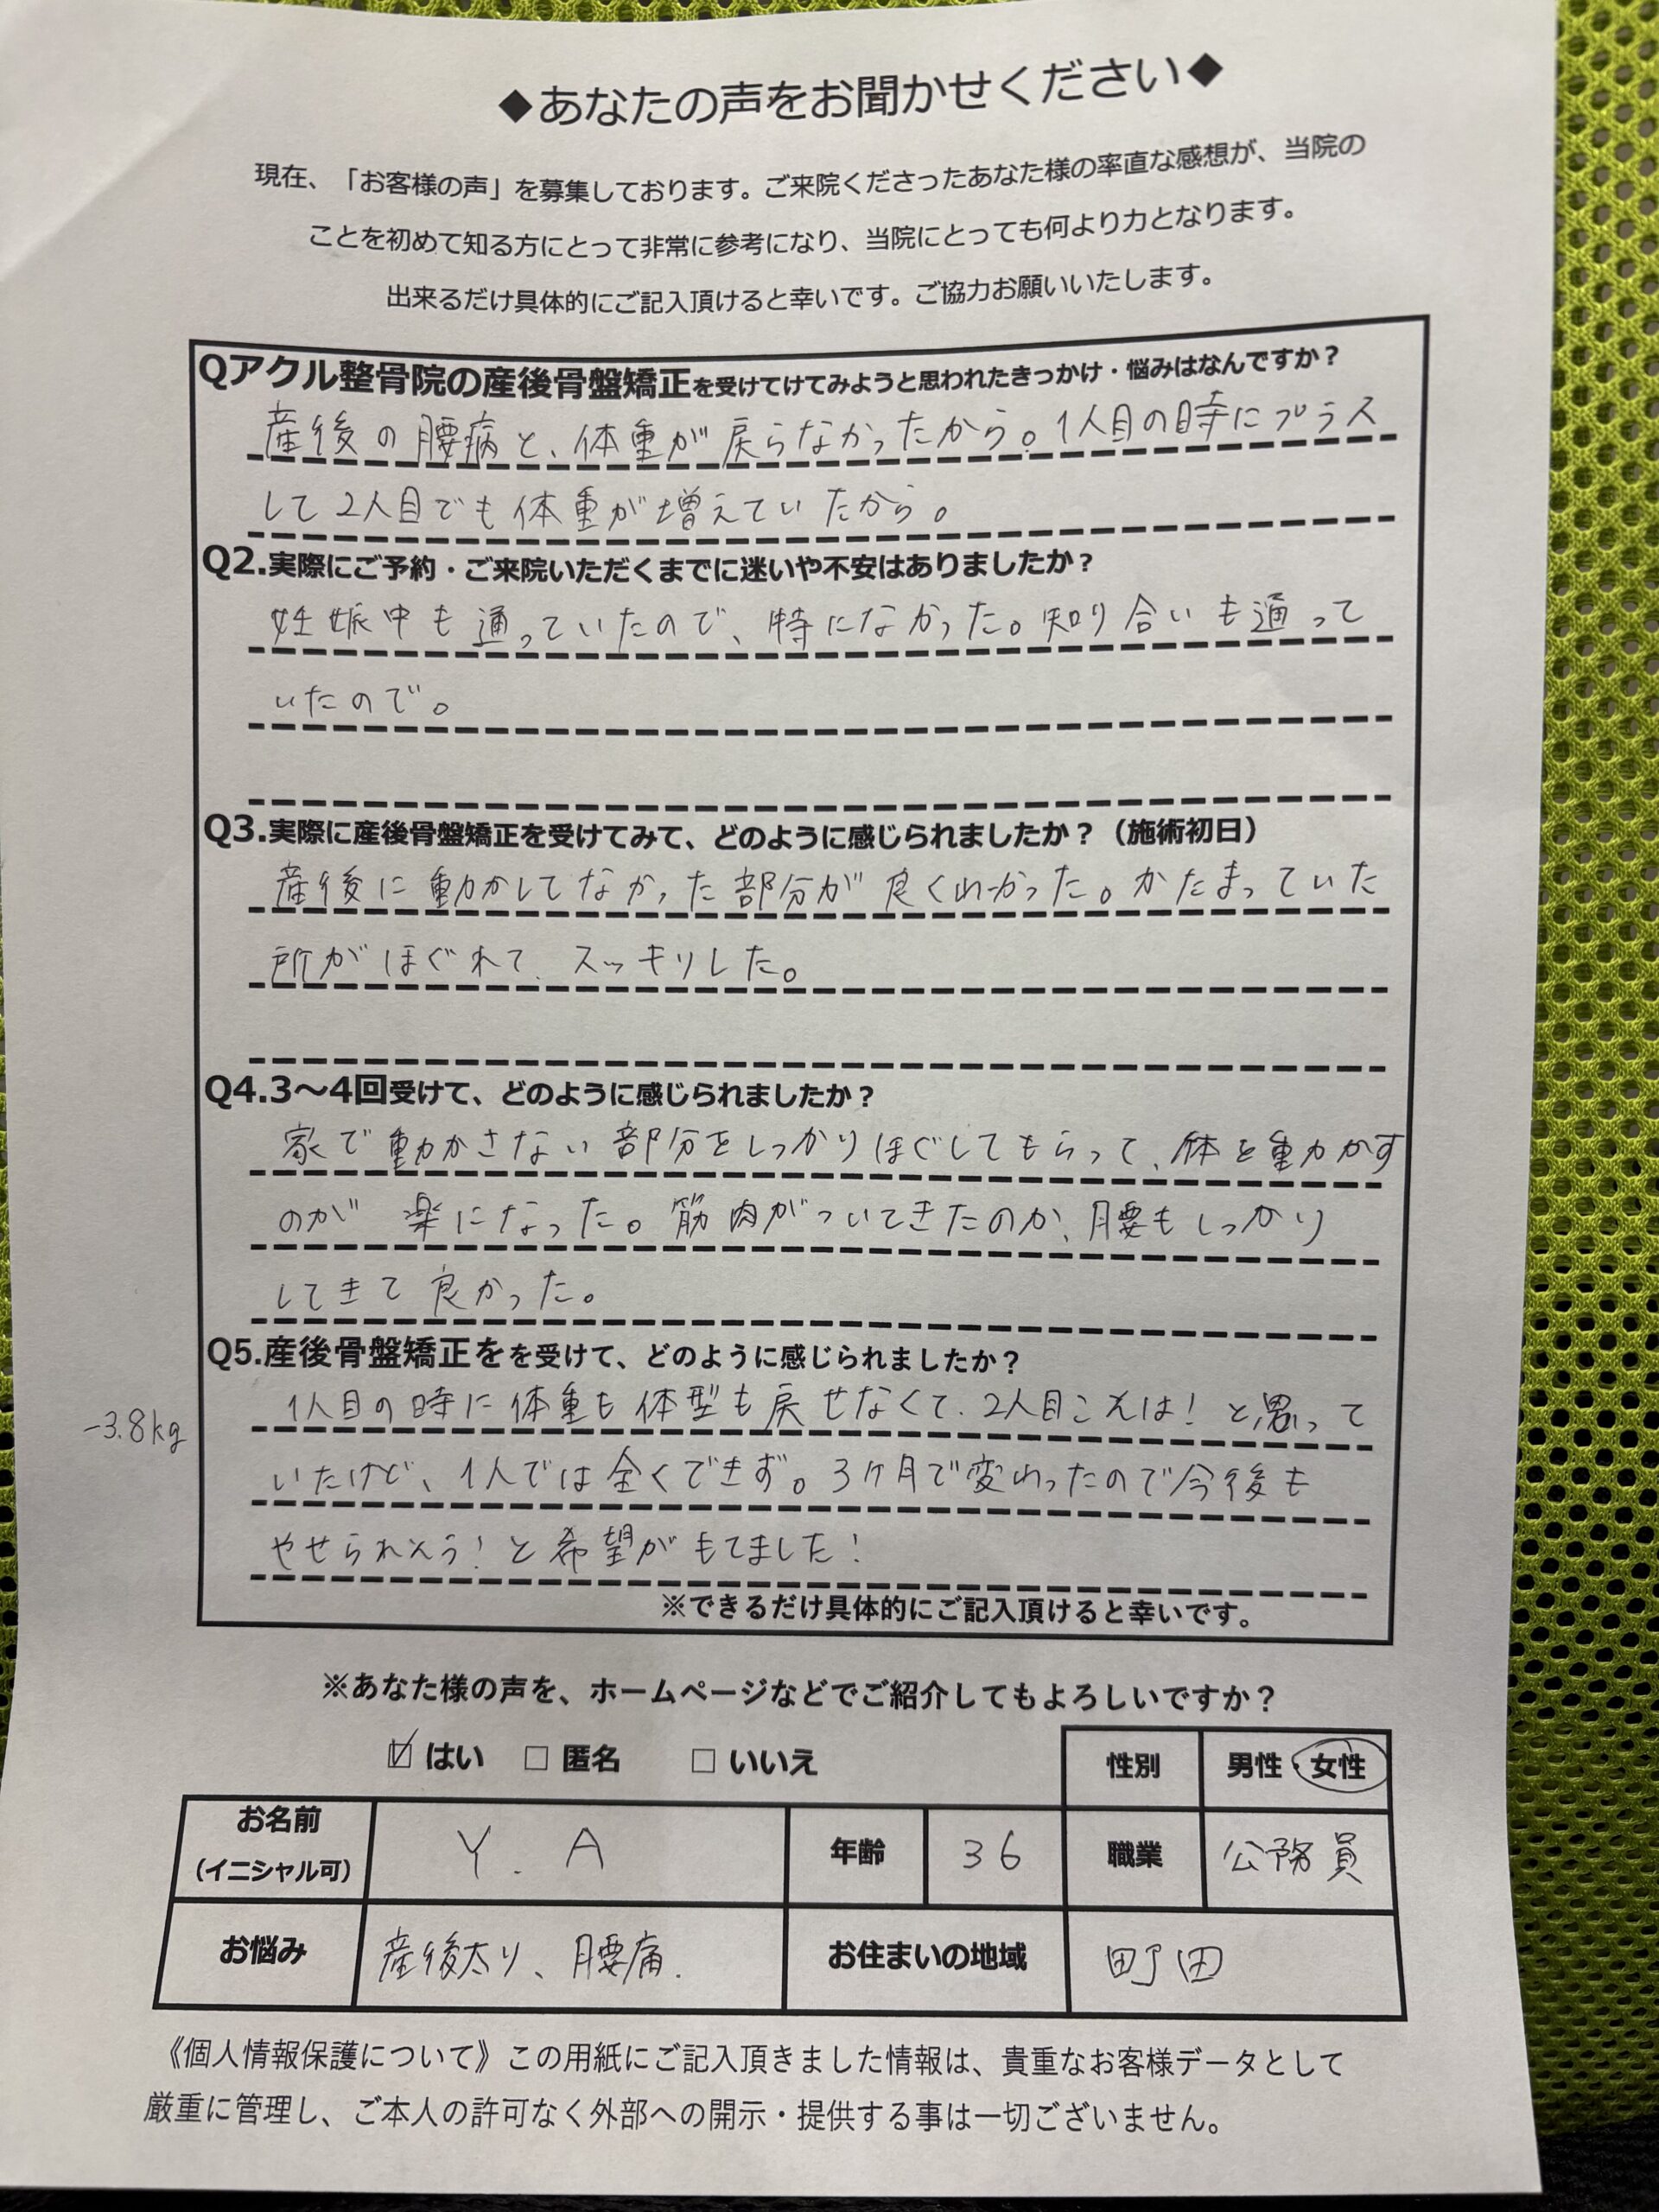 ◆あなたの声をお聞かせください◆
現在、「お客様の声」を募集しております。ご来院くださったあなた様の率直な感想が、当院の
ことを初めて知る方にとって非常に参考になり、当院にとっても何より力となります。
出来るだけ具体的にご記入頂けると幸いです。ご協力お願いいたします。
Qアクル整骨院の産後骨盤矯正を受けてけてみようと思われたきっかけ・悩みはなんですか？
産後の腰痛と、体重が戻らなかったから。1人目の時にプラス
して2人目でも体重が増えていたから。
Q2.実際にご予約・ご来院いただくまでに迷いや不安はありましたか？
妊娠中も通っていたので、特になかった。知り合いも通って
いたので。
Q3.実際に産後骨盤矯正を受けてみて、どのように感じられましたか？（施術初日）
産後に動かしてなかった部分が良くわかった。かたまっていた
所がほぐれて、スッキリした。
Q4.3～4回受けて、どのように感じられましたか？
家で動かさない部分をしっかりほぐしてもらって、体を動かす
のが楽になった。筋肉がついてきたのか、腰もしっかり
してきて良かった。
Q5.産後骨盤矯正をを受けて、どのように感じられましたか？
1人目の時に体重も体型も戻せなくて、2人目こそは！と思って
-3.8kg
いたけど、1人では全くできず。3ヶ月で変わったので今後も
やせられそう！と希望がもてました！
※できるだけ具体的にご記入頂けると幸いです。
※あなた様の声を、ホームページなどでご紹介してもよろしいですか？
☑はい □匿名 □いいえ 性別 男性・女性
お名前（イニシャル可） Y.A 年齢 36 職業 公務員
お悩み 産後太り、腰痛. お住まいの地域 町田
《個人情報保護について》この用紙にご記入頂きました情報は、貴重なお客様データとして
厳重に管理し、ご本人の許可なく外部への開示・提供する事は一切ございません。